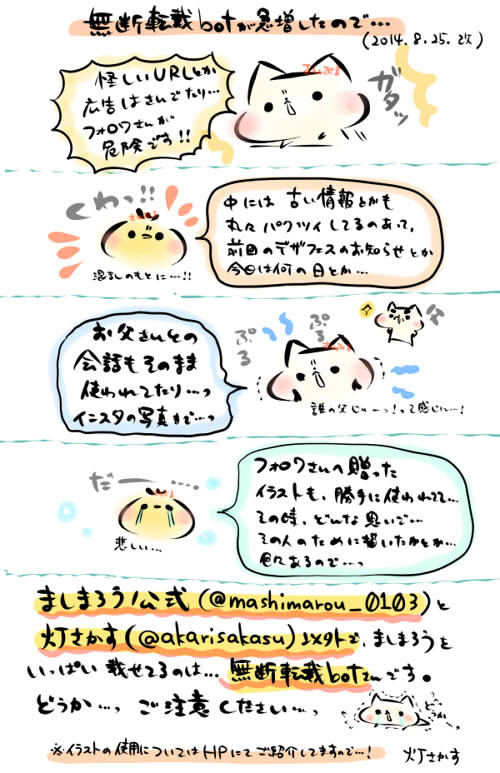 無断転載botが急増したので…
(2014.8.25.改)
怪しいURLとか
広告はさんでたり…
フォロワさんが
危険です!!
ガタッ
くわっ!!
混乱のもとに…!!
中には古い情報とかも
丸々パクツイしてるのあって、
前回のデザフェスのお知らせとか
今日は何の日とか…
お父さんとの
会話もそのまま
使われてたり…っ
インスタの写真まで…っ
ぷる
ぷる
父
誰の父じゃーっ!って感じに…!
だー….
悲しい…
フォロワさんへ贈った
イラストも、勝手に使われてて…
その時、どんな思いで…
その人のために描いたかとか…
色々あるので…っ
ましまろう公式(@mashimarou_0103)と
灯さかす(@akarisakasu)以外で、ましまろうを
いっぱい載せてるのは…無断転載botさんです。
どうか…っ ご注意ください…っ
※イラストの使用についてはHPにてご紹介してますので…!
灯さかす